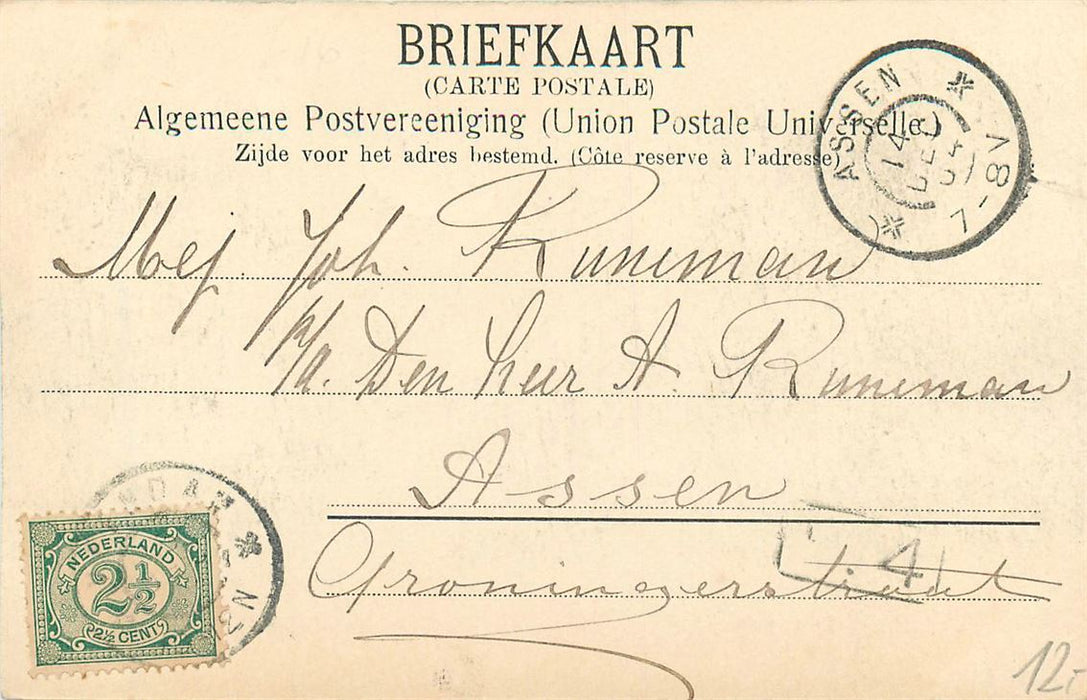 BRIEFKAART
(CARTE POSTALE)
Algemeene Postvereeniging (Union Postale Universelle)
Zijde voor het adres bestemd. (Côte reserve à l'adresse)
ASSEN
14
DEC
04
7-8V
Mej. Joh. Runeman
p/a. Den heer A. Runeman
Assen
Groningerstraat
4
NEDERLAND
2½
2½ CENT
12,-